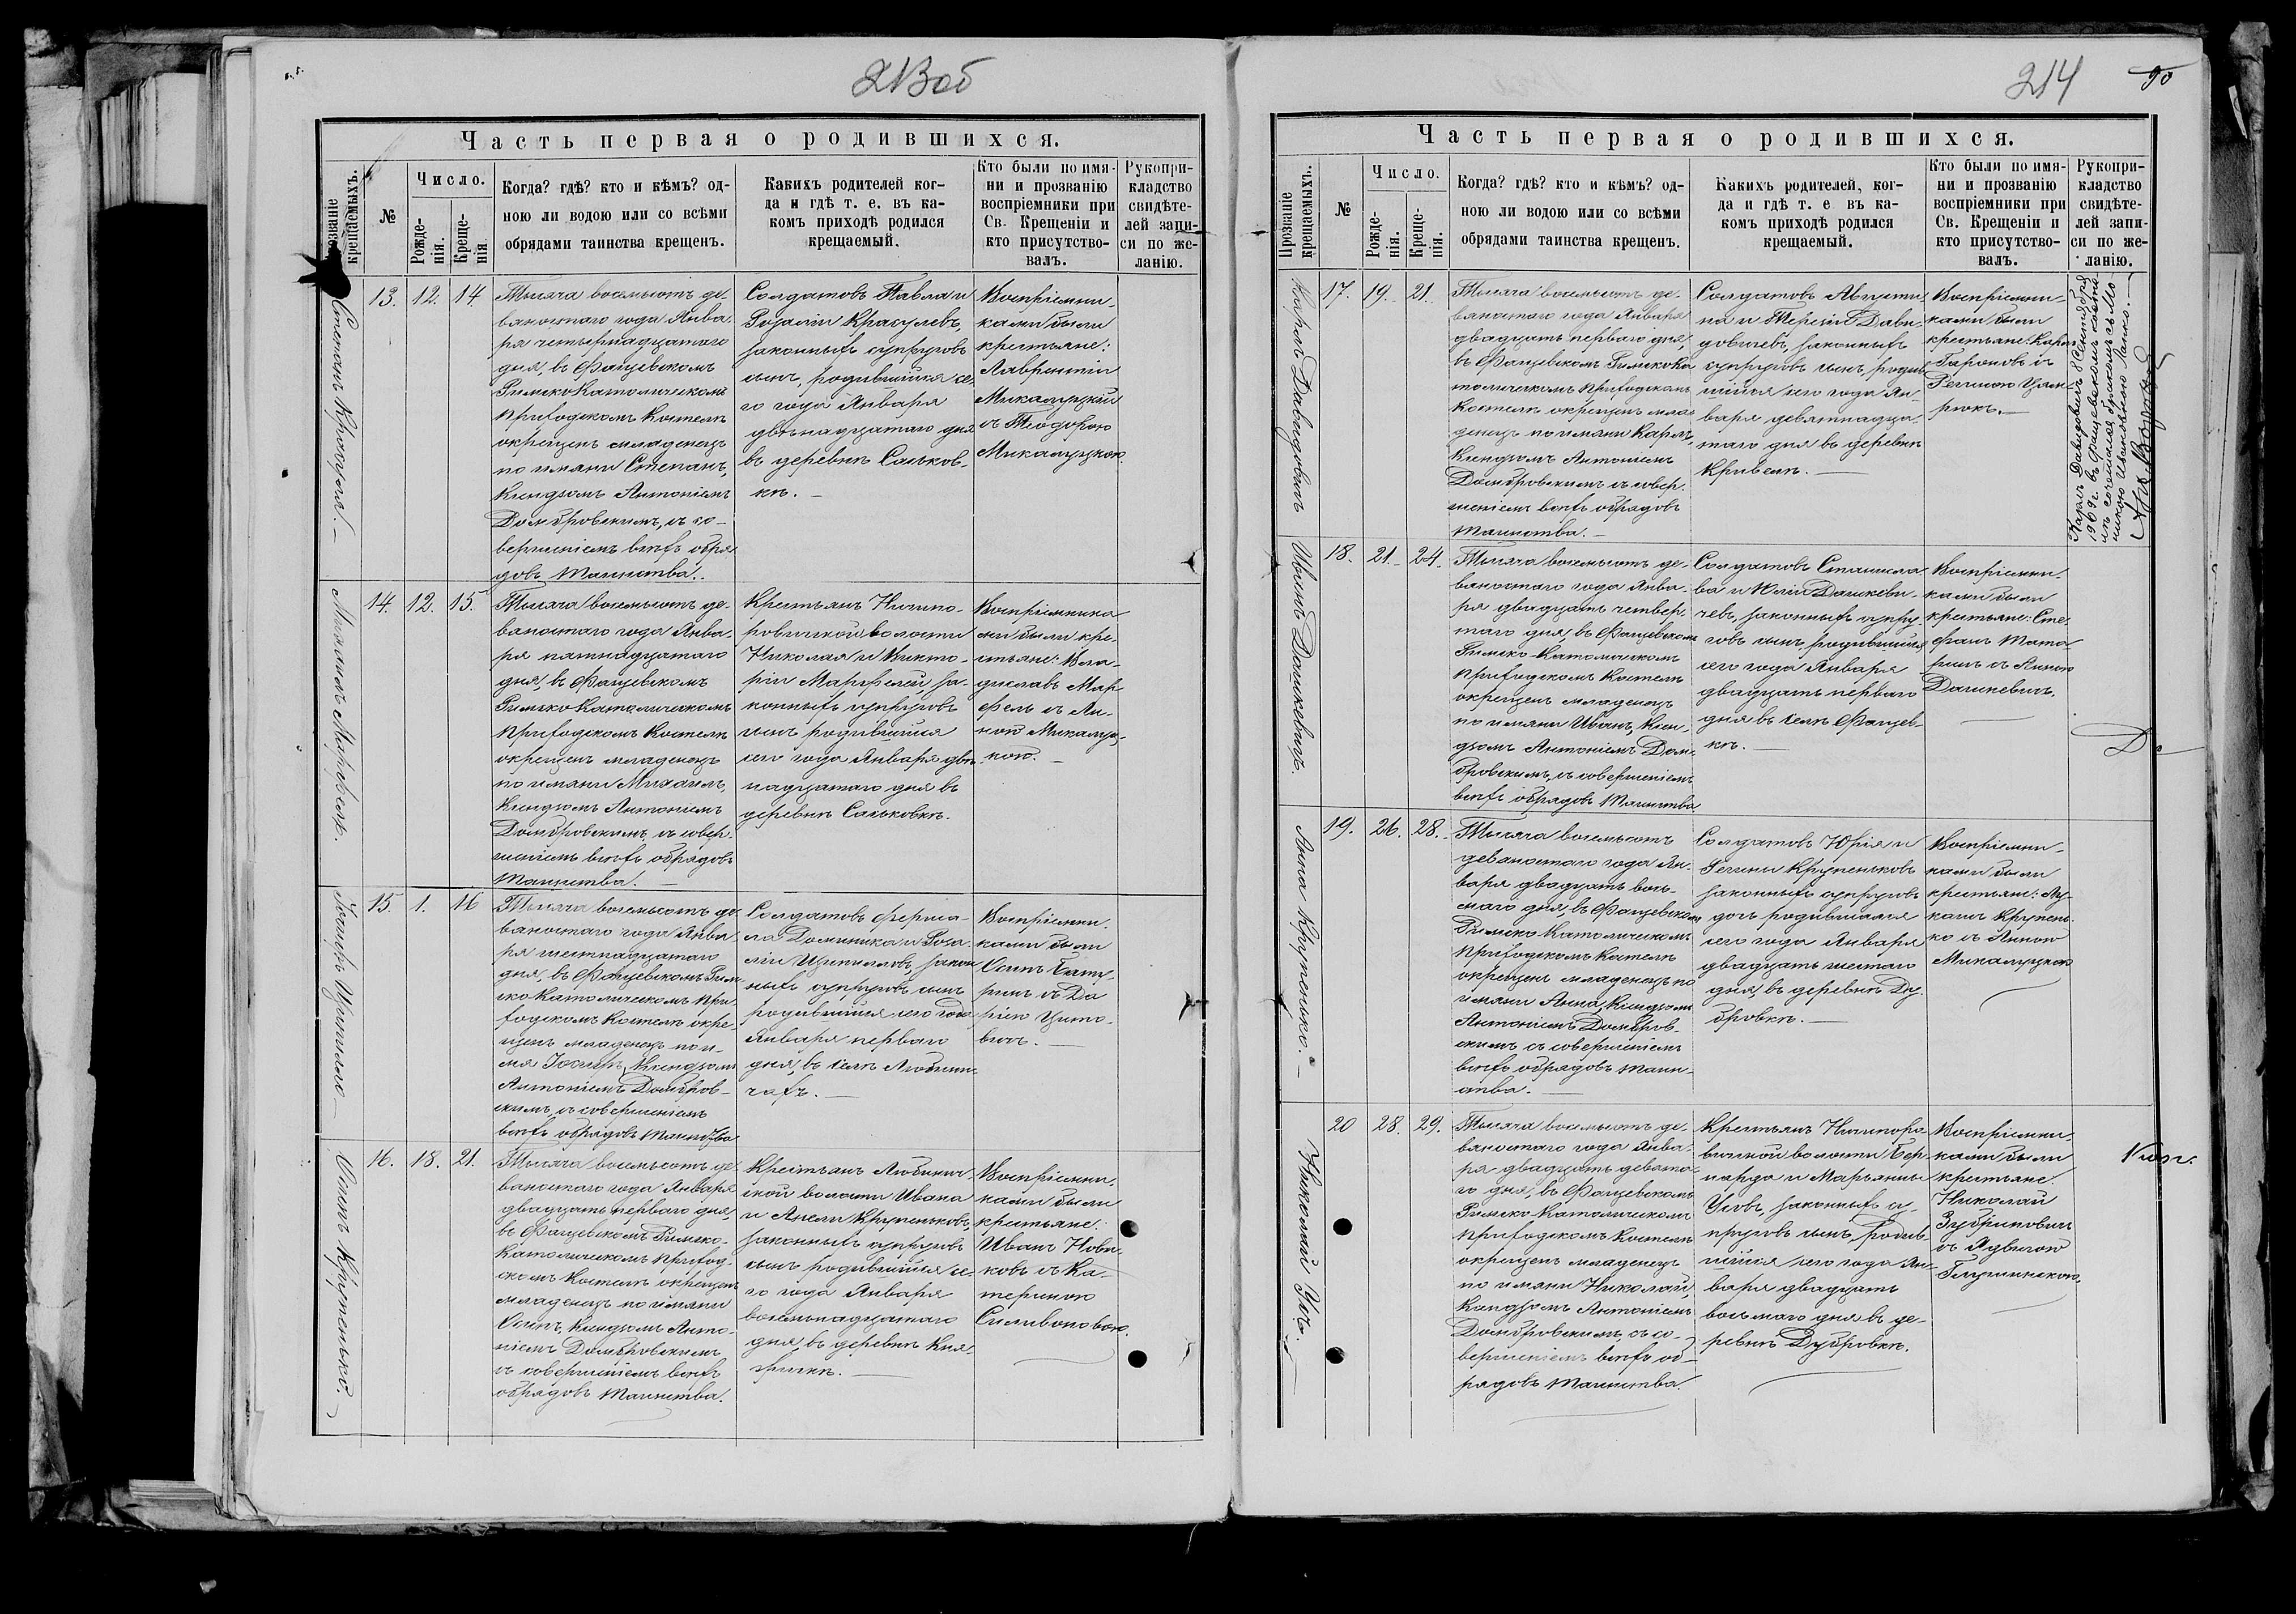 213 об
Часть первая о родившихся.
Прозваніе крещаемыхъ.
№
Число.
Рожде-
нія.
Креще-
нія.
Когда? гдѣ? кто и кѣмъ? од-
ною ли водою или со всѣми
обрядами таинства крещенъ.
Какихъ родителей ког-
да и гдѣ т. е. въ ка-
комъ приходѣ родился
крещаемый.
Кто были по имя-
ни и прозванію
воспріемники при
Св. Крещеніи и
кто присутство-
валъ.
Рукопри-
кладство
свидѣте-
лей запи-
си по же-
ланію.
Степанъ
13. 12. 14.
Тысяча восемьсотъ де-
вяностаго года Янва-
ря четырнадцатаго
дня, въ Фащевскомъ
Римско Католическомъ
Приходскомъ Костелѣ
окрещенъ младенецъ
по имяни Степанъ,
Ксендзомъ Антоніемъ
Домбровскимъ, съ со-
вершеніемъ всѣхъ обря-
довъ Таинства.
Солдатовъ Павла и
Розаліи
законныхъ супруговъ
сынъ, родившійся се-
го года Января
двѣнадцатаго дня
въ деревнѣ Саськов-
кѣ.
Воспріемни-
ками были
крестьяне:
Лаврентій
Микалуцкій
съ Теодорою
Микалуцкою.
Михаилъ
14. 12. 15.
Тысяча восемьсотъ де-
вяностаго года Янва-
ря пятнадцатаго
дня, въ Фащевскомъ
Римско Католическомъ
Приходскомъ Костелѣ
окрещенъ младенецъ
по имяни Михаилъ,
Ксендзомъ Антоніемъ
Домбровскимъ, съ совер-
шеніемъ всѣхъ обрядовъ
Таинства.
Крестьянъ Ничипо-
ровичской волости
Николая и Викто-
ріи за-
конныхъ супруговъ
сынъ родившійся
сего года Января двѣ-
надцатаго дня въ
деревнѣ Саськовкѣ.
Воспріемника-
ми были кре-
стьяне: Вла-
диславъ Мар-
фель съ Ан-
ною Микалуц-
кою.
Іосифъ
15. 1. 16
Тысяча восемьсотъ де-
вяностаго года Янва-
ря шестнадцатаго
дня, въ Фащевскомъ Рим-
ско Католическомъ При-
ходскомъ Костелѣ окре-
щенъ младенецъ по и-
мя Іосифъ, Ксендзомъ
Антоніемъ Домбров-
скимъ, съ совершеніемъ
всѣхъ обрядовъ Таинства
Солдатовъ
Доминика и Роза-
ліи закон-
ныхъ супруговъ сынъ
родившійся сего года
Января перваго
дня, въ селѣ Любини-
чахъ.
Воспріемни-
ками были
Осипъ
съ Да
ріею
Осипъ Крупенько.
16. 18. 21.
Тысяча восемьсотъ де-
вяностаго года Января
двадцать перваго дня,
въ Фащевскомъ Римско-
Католическомъ Приход-
скомъ Костелѣ окрещенъ
младенецъ по имяни
Осипъ, Ксендзомъ Анто-
ніемъ Домбровскимъ
съ совершеніемъ всѣхъ
обрядовъ Таинства.
Крестьянъ Любинич-
ской волости Ивана
и Анели Крупеньковъ
законныхъ супруговъ
сынъ родившійся се-
го года Января
восемьнадцатаго
дня, въ деревнѣ Кня-
жичкѣ.
Воспріемни-
ками были
крестьяне:
Иванъ Нови-
ковъ съ Ка-
териною
Силивоновою.
214
90
Часть первая о родившихся.
Прозваніе
крещаемыхъ.
№
Число.
Рожде-
нія.
Креще-
нія.
Когда? гдѣ? кто и кѣмъ? од-
ною ли водою или со всѣми
обрядами таинства крещенъ.
Какихъ родителей, ког-
да и гдѣ т. е въ ка-
комъ приходѣ родился
крещаемый.
Кто были по имя-
ни и прозванію
воспріемники при
Св. Крещеніи и
кто присутство-
валъ.
Рукопри-
кладство
свидѣте-
лей запи-
си по же-
ланію.
Карлъ Давидовичъ
17. 19. 21.
Тысяча восемьсотъ де-
вяностаго года Января
двадцать перваго дня,
въ Фащевскомъ Римско Ка-
толическомъ Приходскомъ
Костелѣ окрещенъ мла-
денецъ по имяни Карлъ,
Ксендзомъ Антоніемъ
Домбровскимъ съ совер-
шеніемъ всѣхъ обрядовъ
Таинства.
Солдатовъ Августи-
на и Терезіи Дави-
довичевъ, законныхъ
супруговъ сынъ родив-
шійся сего года Ян-
варя девятнадца-
таго дня въ деревнѣ
Кривелѣ.
Воспріемни-
ками были
крестьяне: Карлъ
съ
Региною
Карлъ Давидовичъ 8 Сентября
1909 г. въ Фащевскомъ косте-
лѣ сочетался бракомъ съ Мо-
никою
Иванъ Дашкевичъ.
18. 21. 24.
Тысяча восемьсотъ де-
вяностаго года Янва-
ря двадцать четвер-
таго дня, въ Фащевскомъ
Римско-Католическомъ
Приходскомъ Костелѣ
окрещенъ младенецъ
по имяни Иванъ, Ксен-
дзомъ Антоніемъ Дом-
бровскимъ, съ совершеніемъ
всѣхъ обрядовъ Таинства
Солдатовъ Станисла-
ва и Юліи Дашкеви-
чевъ, законныхъ супру-
говъ сынъ, родившійся
сего года Января
двадцать перваго
дня въ селѣ Фащев-
кѣ.
Воспріемни-
ками были
крестьяне: Сте-
фанъ Тата-
ринъ съ Анною
Дашкевичъ.
Анна Крупенько.
19. 26. 28.
Тысяча восемьсотъ
девяностаго года Ян-
варя двадцать вось-
маго дня, въ Фащевскомъ
Римско Католическомъ
Приходскомъ Костелѣ
окрещенъ младенецъ по
имяни Анна, Ксендзомъ
Антоніемъ Домбров-
скимъ съ совершеніемъ
всѣхъ обрядовъ Таин-
ства.
Солдатовъ Юрія и
Регины Крупеньковъ
законныхъ супруговъ
дочь родившаяся
сего года Января
двадцать шестаго
дня, въ деревнѣ Ду-
бровкѣ.
Воспріемни-
ками были
крестьяне: Лу-
кашъ Крупень-
ко съ Анною
Микалуцкою
Николай Усъ.
20 28. 29.
Тысяча восемьсотъ де-
вяностаго года Янва-
ря двадцать девята-
го дня, въ Фащевскомъ
Римско Католическомъ
Приходскомъ Костелѣ
окрещенъ младенецъ
по имяни Николай,
Ксендзомъ Антоніемъ
Домбровскимъ, съ со-
вершеніемъ всѣхъ об-
рядовъ Таинства.
Крестьянъ Ничипоро-
вичской волости Бер-
нарда и Марьянны
Усовъ, законныхъ су-
пруговъ сынъ, родив-
шійся сего года Ян-
варя двадцать
восьмаго дня въ де-
ревнѣ Дубровкѣ.
Воспріемни-
ками были
крестьяне:
Николай
Зубриновичъ
съ Ядвигою